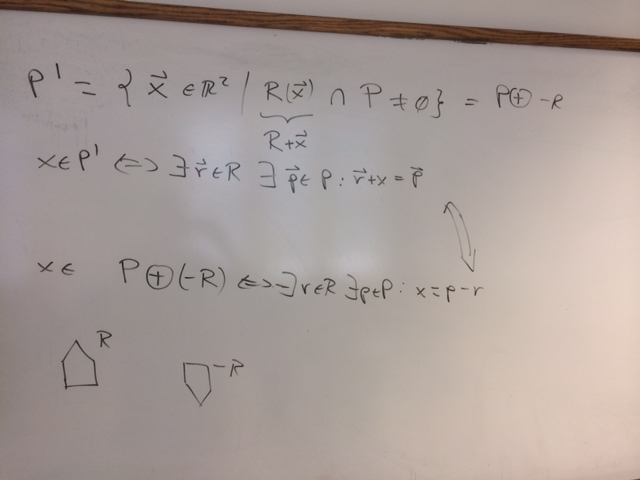 P' = { x⃗ ∈ ℝ² / R(x⃗) ∩ P ≠ ∅ } = P ⊕ -R
R+x⃗
x ∈ P' ⟺ ∃ r⃗ ∈ R ∃ p⃗ ∈ P : r⃗ + x = p⃗
x ∈ P ⊕ (-R) ⟺ ∃ r ∈ R ∃ p ∈ P : x = p - r
R
-R